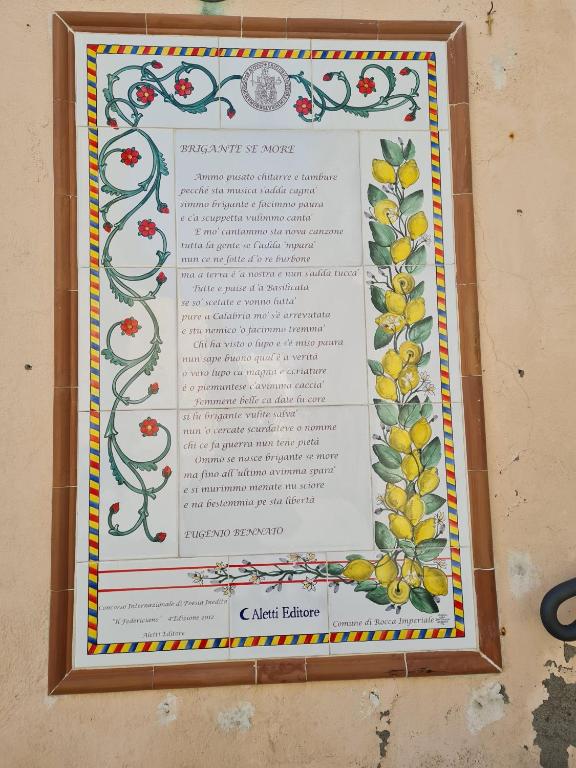 BRIGANTE SE MORE
Ammo pusato chitarre e tambure
pecché sta musica s'adda cagna'
simmo brigante e facimmo paura
e c'a scuppetta vulimmo cantà'
E mo' cantammo sta nova canzone
tutta la gente se l'adda 'mparà'
nun ce ne fotte d'o re burbone
ma a terra é 'a nostra e nun s'adda tuccà'
Tutte e paise d'a Basilicata
se so' scetate e vonno luttà'
pure a Calabria mo' s'è arrevutata
e stu nemico 'o facimmo tremmà'
Chi ha visto o lupo e s'è miso paura
nun sape buono qual'è a verità
o vero lupo ca magna e ccriature
é o piemuntese c'avimma caccià'
Femmene belle ca date lu core
si lu brigante vulite salvà'
nun 'o cercate scurdateve o nomme
chi ce fa guerra nun tene pietà
Ommo se nasce brigante se more
ma fino all'ultimo avimma sparà'
e si murimmo menate nu sciore
e na bestemmia pe sta libertà
EUGENIO BENNATO
Concorso Internazionale di Poesia Inedita
"Il Federiciano" 4ª Edizione 2012
Aletti Editore
Aletti Editore
Comune di Rocca Imperiale